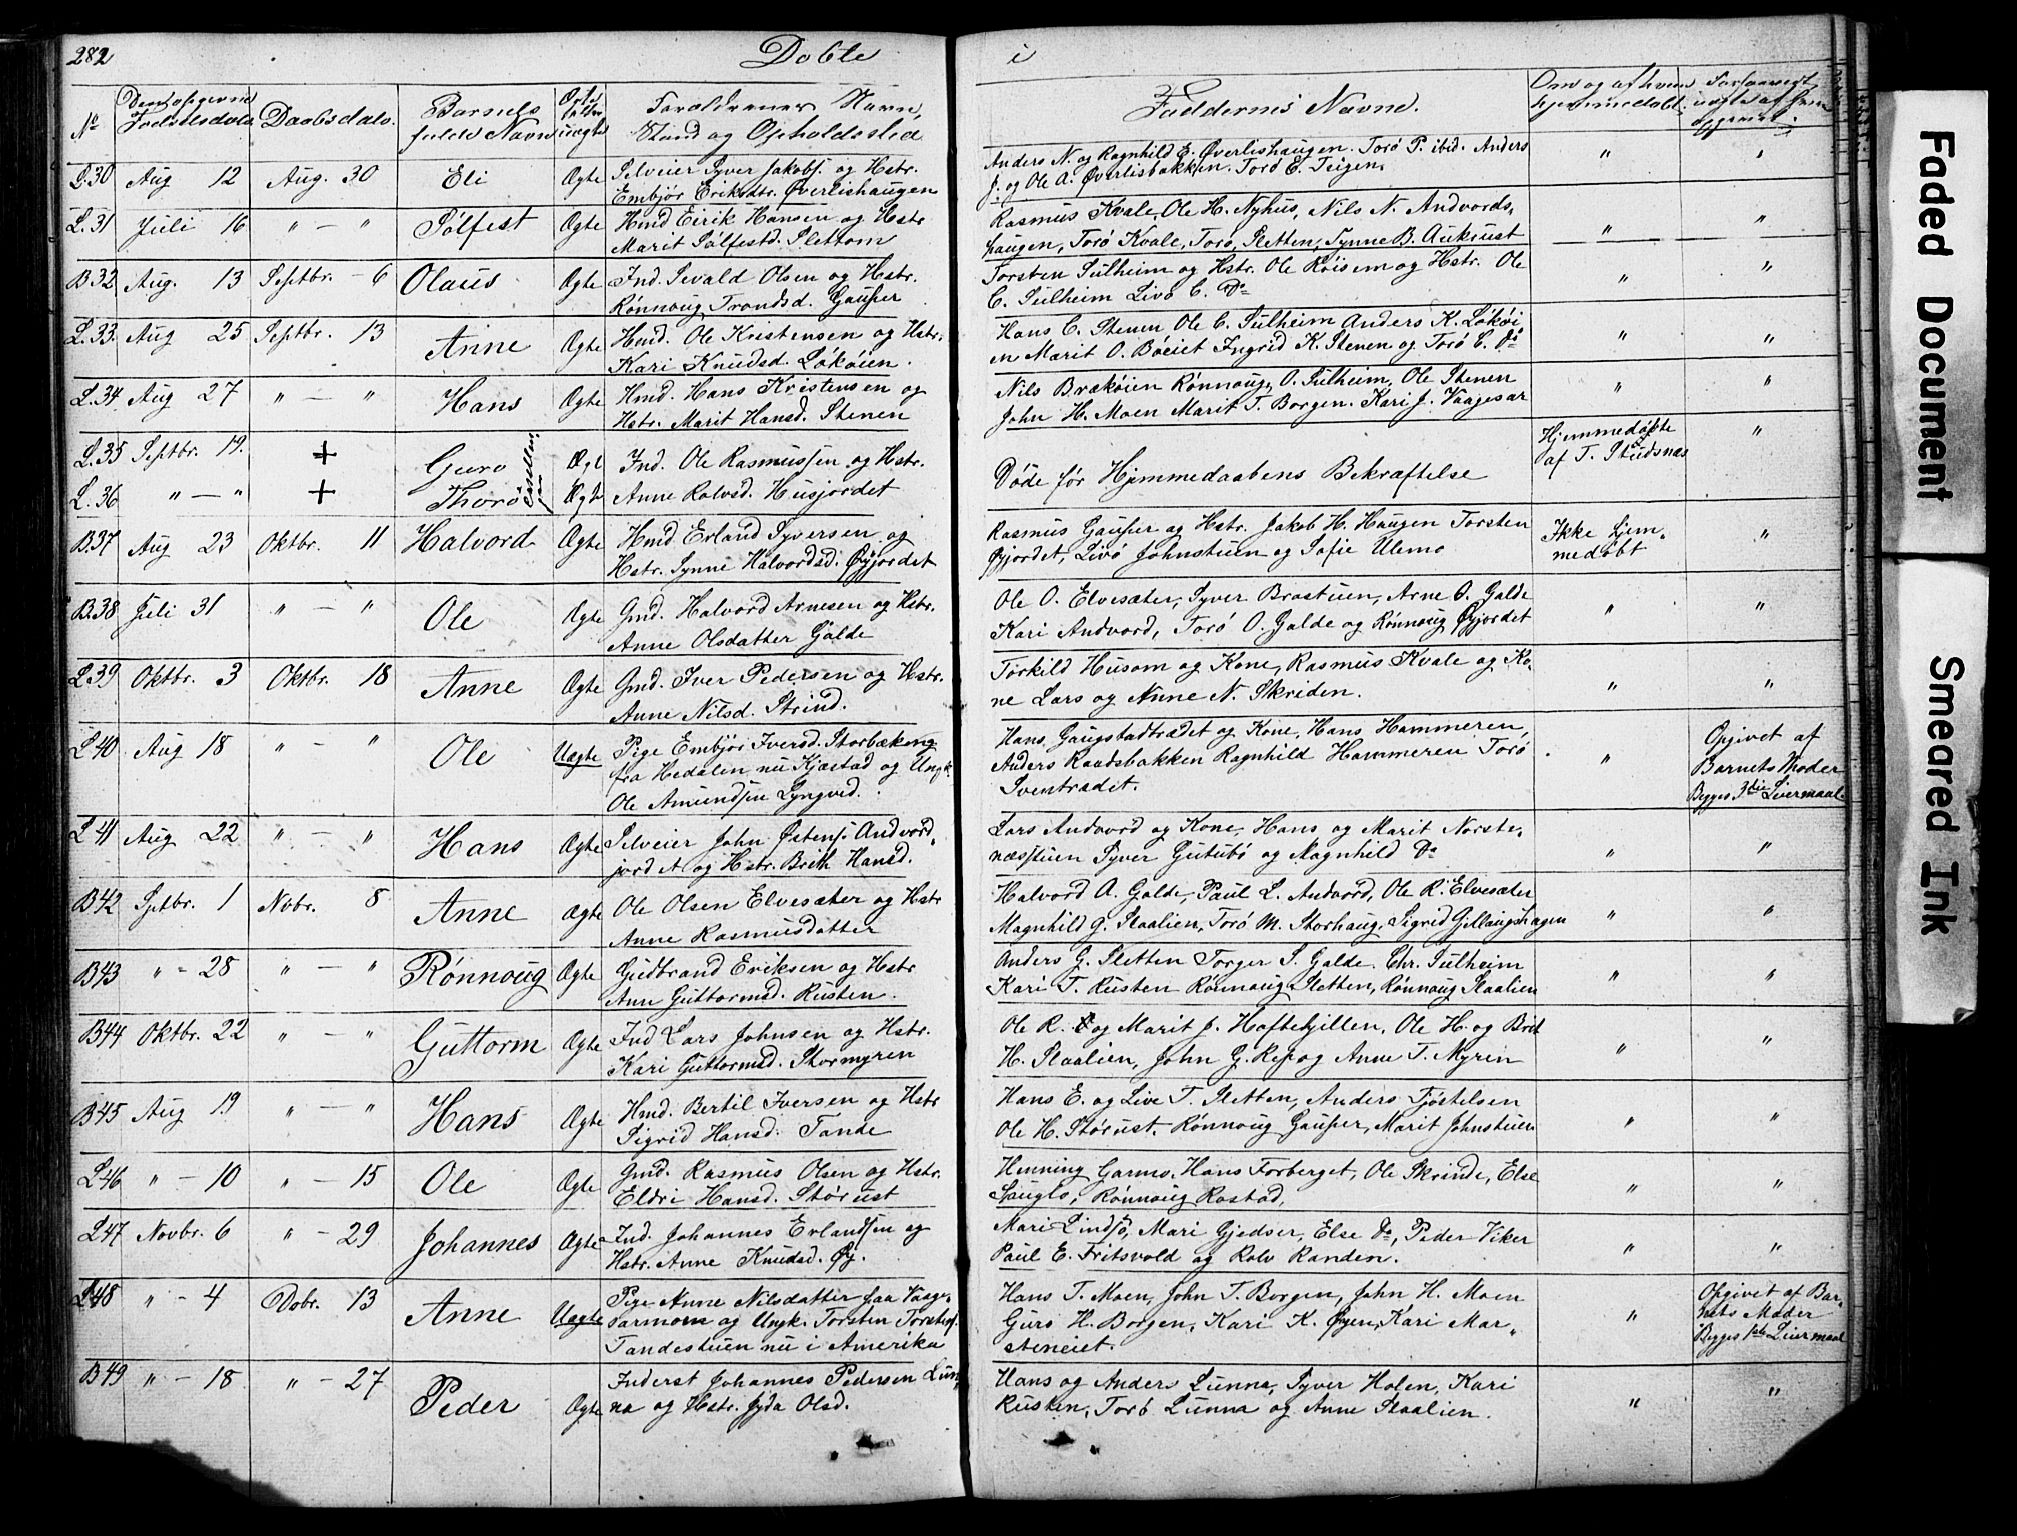 282
Döbte
i
No
Den opgivne Fødselsdato
Daabsdato.
Barnets fulde Navn
Ægte eller uægte
Forældrenes Navn, Stand og Opholdssted
Faddernes Navne.
Om og af hvem hjemmedøbt
L.30 Aug 12 Aug. 30 Eli Ægte Selveier Syver Jakobs. og Hstr.
Embjør Eriksdtr. Øverlishaugen
Anders N. og Ragnhild E. Øverlishaugen. Torø P. ibid. Anders
J. og Ole A. Øverlisbakken. Torø E.
L.31 Juli 16 " — " Sølfest Ægte Hmd Eirik Hansen og Hstr
Marit Sølfestd. Slettom
Rasmus Kvale, Ole H. Nyhus, Nils N. Andvords-
haugen, Torø Kvale, Torø Sletten, Synne B. Aukrust
B.32 Aug. 13 Septbr. - 6 Olaus Ægte Ind. Sevald Olsen og Hstr.
Rønnoug Trondsd. Gaupar
Torsten Sulheim og Hstr. Ole Røisem og Hstr. Ole
C. Sulheim Livø C. Do
L.33. Aug 25 Septbr. 13 Anne Ægte Hmd. Ole Kristensen og Hstr.
Kari Knudsd. Løkøien.
Hans C. Stenen Ole C. Sulheim Anders K. Løkøi-
en Marit O. Bøeiet Ingrid K. Stenen og Torø C. Do
L.34. Aug 27 " — " Hans Ægte Hmd. Hans Kristensen og
Hstr. Marit Hansd. Stenen
Nils Brækøien Rønnoug O. Sulheim, Ole Stenen
John H. Moen Marit T. Borgen. Kari J. Vaagesar
L.35 Septbr. 19. + Guro Ægt Ind. Ole Rasmussen og Hstr.
L.36 " — " + Thorø Ægte Anne Rolvsd. Husjordet
Døde før Hjemmedaabens Bekræftelse
Hjemmedøbte
af T. Studsnæs
B.37 Aug 23 Oktbr. 11 Halvord Ægte Hmd Erland Syversen og
Hstr. Synne Halvordsd. Øyjordet
Rasmus Gauper og Hstr. Jakob H. Haugen Torsten
Øyjordet, Livø Johnstuen og Sofie Ulemo
Ikke hjem-
medøbt
B.38 Juli 31 " — " Ole Ægte Gmd. Halvord Arnesen og Hstr.
Anne Olsdatter Galde
Ole O. Elvesæter, Syver Brostuen, Arne O. Galde
Kari Andvord, Torø O. Galde og Rønnoug Øyjordet
L.39 Oktbr. 3 Oktbr. 18 Anne Ægte Gmd. Iver Pedersen og Hstr.
Anne Nilsd. Strind.
Torkild Husom og Kone, Rasmus Kvale og Ko-
ne Lars og Anne N. Skriden.
L.40 Aug 18 " — " Ole Uægte Pige Embjør Iversd. Storbækeng
fra Hedalen nu Kjæstad og Ungk.
Ole Amundsen Lyngved.
Hans Gaugstadtrædet og Kone, Hans Hammeren,
Anders Raadsbakken Ragnhild Hammeren Torø
Sventrædet.
Opgivet af
Barnets Moder
Begges 3die Leiermaal
L.41 Aug 22 " — " Hans Ægte Selveier John Østens. Andvord-
jordet og Hstr. Brith Hansd.
Lars Andvord og Kone, Hans og Marit Norste-
næsstuen Syver Gutubø og Magnhild Do
B42 Sptbr. 1 Novbr. 8 Anne Ægte Ole Olsen Elvesæter og Hstr
Anne Rasmusdatter
Halvord A. Galde, Paul L. Andvord, Ole R. Elvesæter
Magnhild G. Slaalien, Torø M. Storhaug, Sigrid Gillaugshagen
B43 " - 28 " — " Rønnoug Ægte Gudbrand Eriksen og Hstr
Ann Guttormsd. Rusten.
Anders G. Sletten Torger S. Galde. Chr. Sulheim
Kari T. Rusten Rønnoug Sletten, Rønnoug Slaalien
B44 Oktbr. 22 " — " Guttorm Ægte Ind Lars Johnsen og Hstr.
Kari Guttormsd. Stormyren
Ole R. og Marit J. Hoftekjillen, Ole H. og Brit
H. Slaalien, John G. Rep og Anne T. Myren
B45 Aug 19 " — " Hans Ægte Hmd. Bertil Iversen og Hstr
Sigrid Hansd. Tande
Hans E. og Live T. Sletten, Anders Tjøstelsen
Ole H. Storust. Rønnoug Gauper, Marit Johnstuen
L46 " — 10 " — 15 Ole Ægte Gmd. Rasmus Olsen og Hstr.
Eldri Hansd. Storust
Henning Garmo, Hans Forberget, Ole Skrinde, Else
Spuglø, Rønnoug Rostad,
L47 Novbr. 6 " — 29 Johannes Ægte Ind. Johannes Erlandsen og
Hstr. Anne Knudsd. Øy.
Mari Lindsø, Mari Gjedser, Else Do, Peder Viker
Paul E. Fritsvold og Rolv Randen.
L48 " — 4 Dcbr. 13 Anne Uægte Pige Anne Nilsdatter paa Vaage-
sarmoen og Ungk. Torsten Torstens.
Tandestuen nu i Amerika
Hans T. Moen, John T. Borgen, John H. Moen
Guro H. Borgen, Kari K. Øyen, Kari Mar-
steneiet.
Opgivet af Bar-
nets Moder
Begges 1ste Leiermaal
B49 " — 18 " — 27 Peder Ægte Inderst Johannes Pedersen Lun-
na og Hstr. Gyda Olsd.
Hans og Anders Lunna, Syver Holen, Kari
Rusten, Torø Lunna og Anne Slaalien.
Faded Document
Smeared Ink